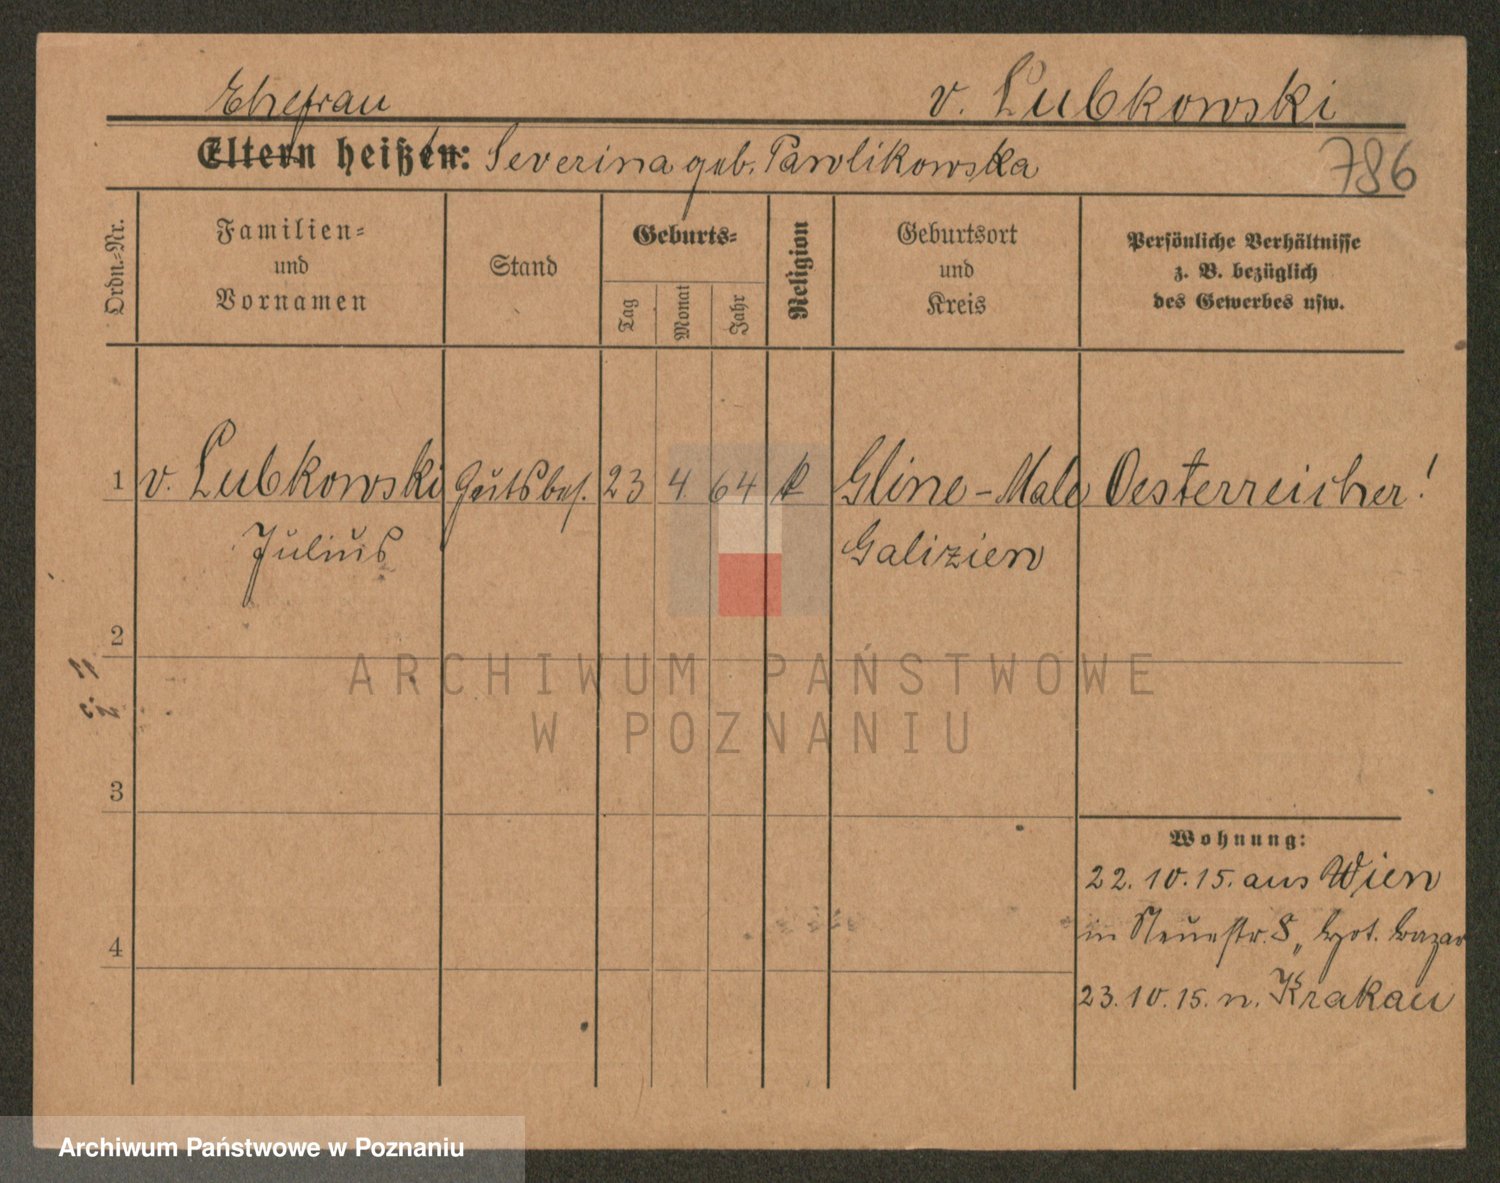 Ehefrau
v. Lubkowski
Eltern heißen: Severina geb. Pawlikowska
786
Ordn.-Nr.
Familien-
und
Vornamen
Stand
Geburts-
Tag
Monat
Jahr
Religion
Geburtsort
und
Kreis
Persönliche Verhältnisse
z. B. bezüglich
des Gewerbes usw.
1 v. Lubkowski Gutsbes. 23 4 64 k Gline-Male Oesterreicher!
Julius Galizien
2
3
4
Wohnung:
22.10.15. aus Wien
in Neuestr. 8, Hot. Bazar
23.10.15. n. Krakau
ARCHIWUM PAŃSTWOWE
W POZNANIU
Archiwum Państwowe w Poznaniu